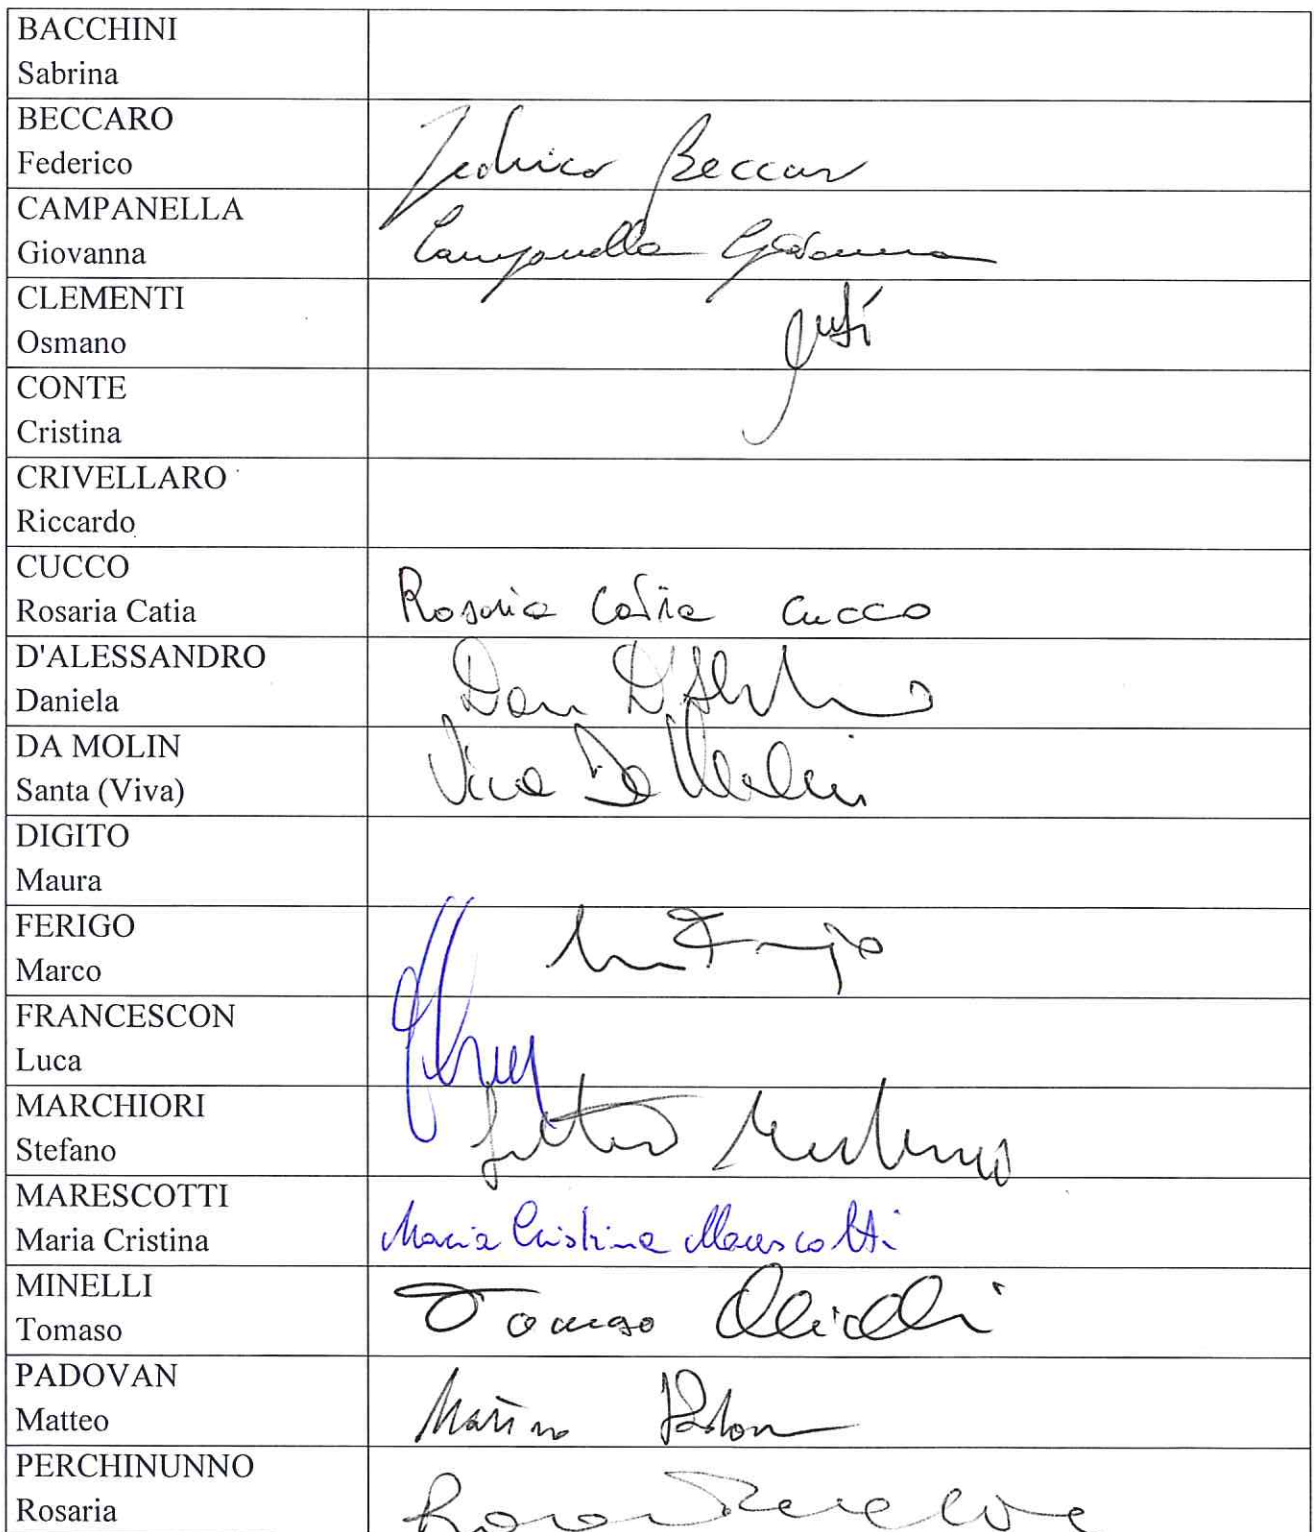 BACCHINI
Sabrina
BECCARO
Federico
Federico Beccaro
CAMPANELLA
Giovanna
Campanella Giovanna
CLEMENTI
Osmano
CONTE
Cristina
CRIVELLARO
Riccardo
CUCCO
Rosaria Catia
Rosaria Catia Cucco
D'ALESSANDRO
Daniela
DA MOLIN
Santa (Viva)
Viva Da Molin
DIGITO
Maura
FERIGO
Marco
FRANCESCON
Luca
MARCHIORI
Stefano
MARESCOTTI
Maria Cristina
Maria Cristina Marescotti
MINELLI
Tomaso
Tomaso Minelli
PADOVAN
Matteo
PERCHINUNNO
Rosaria